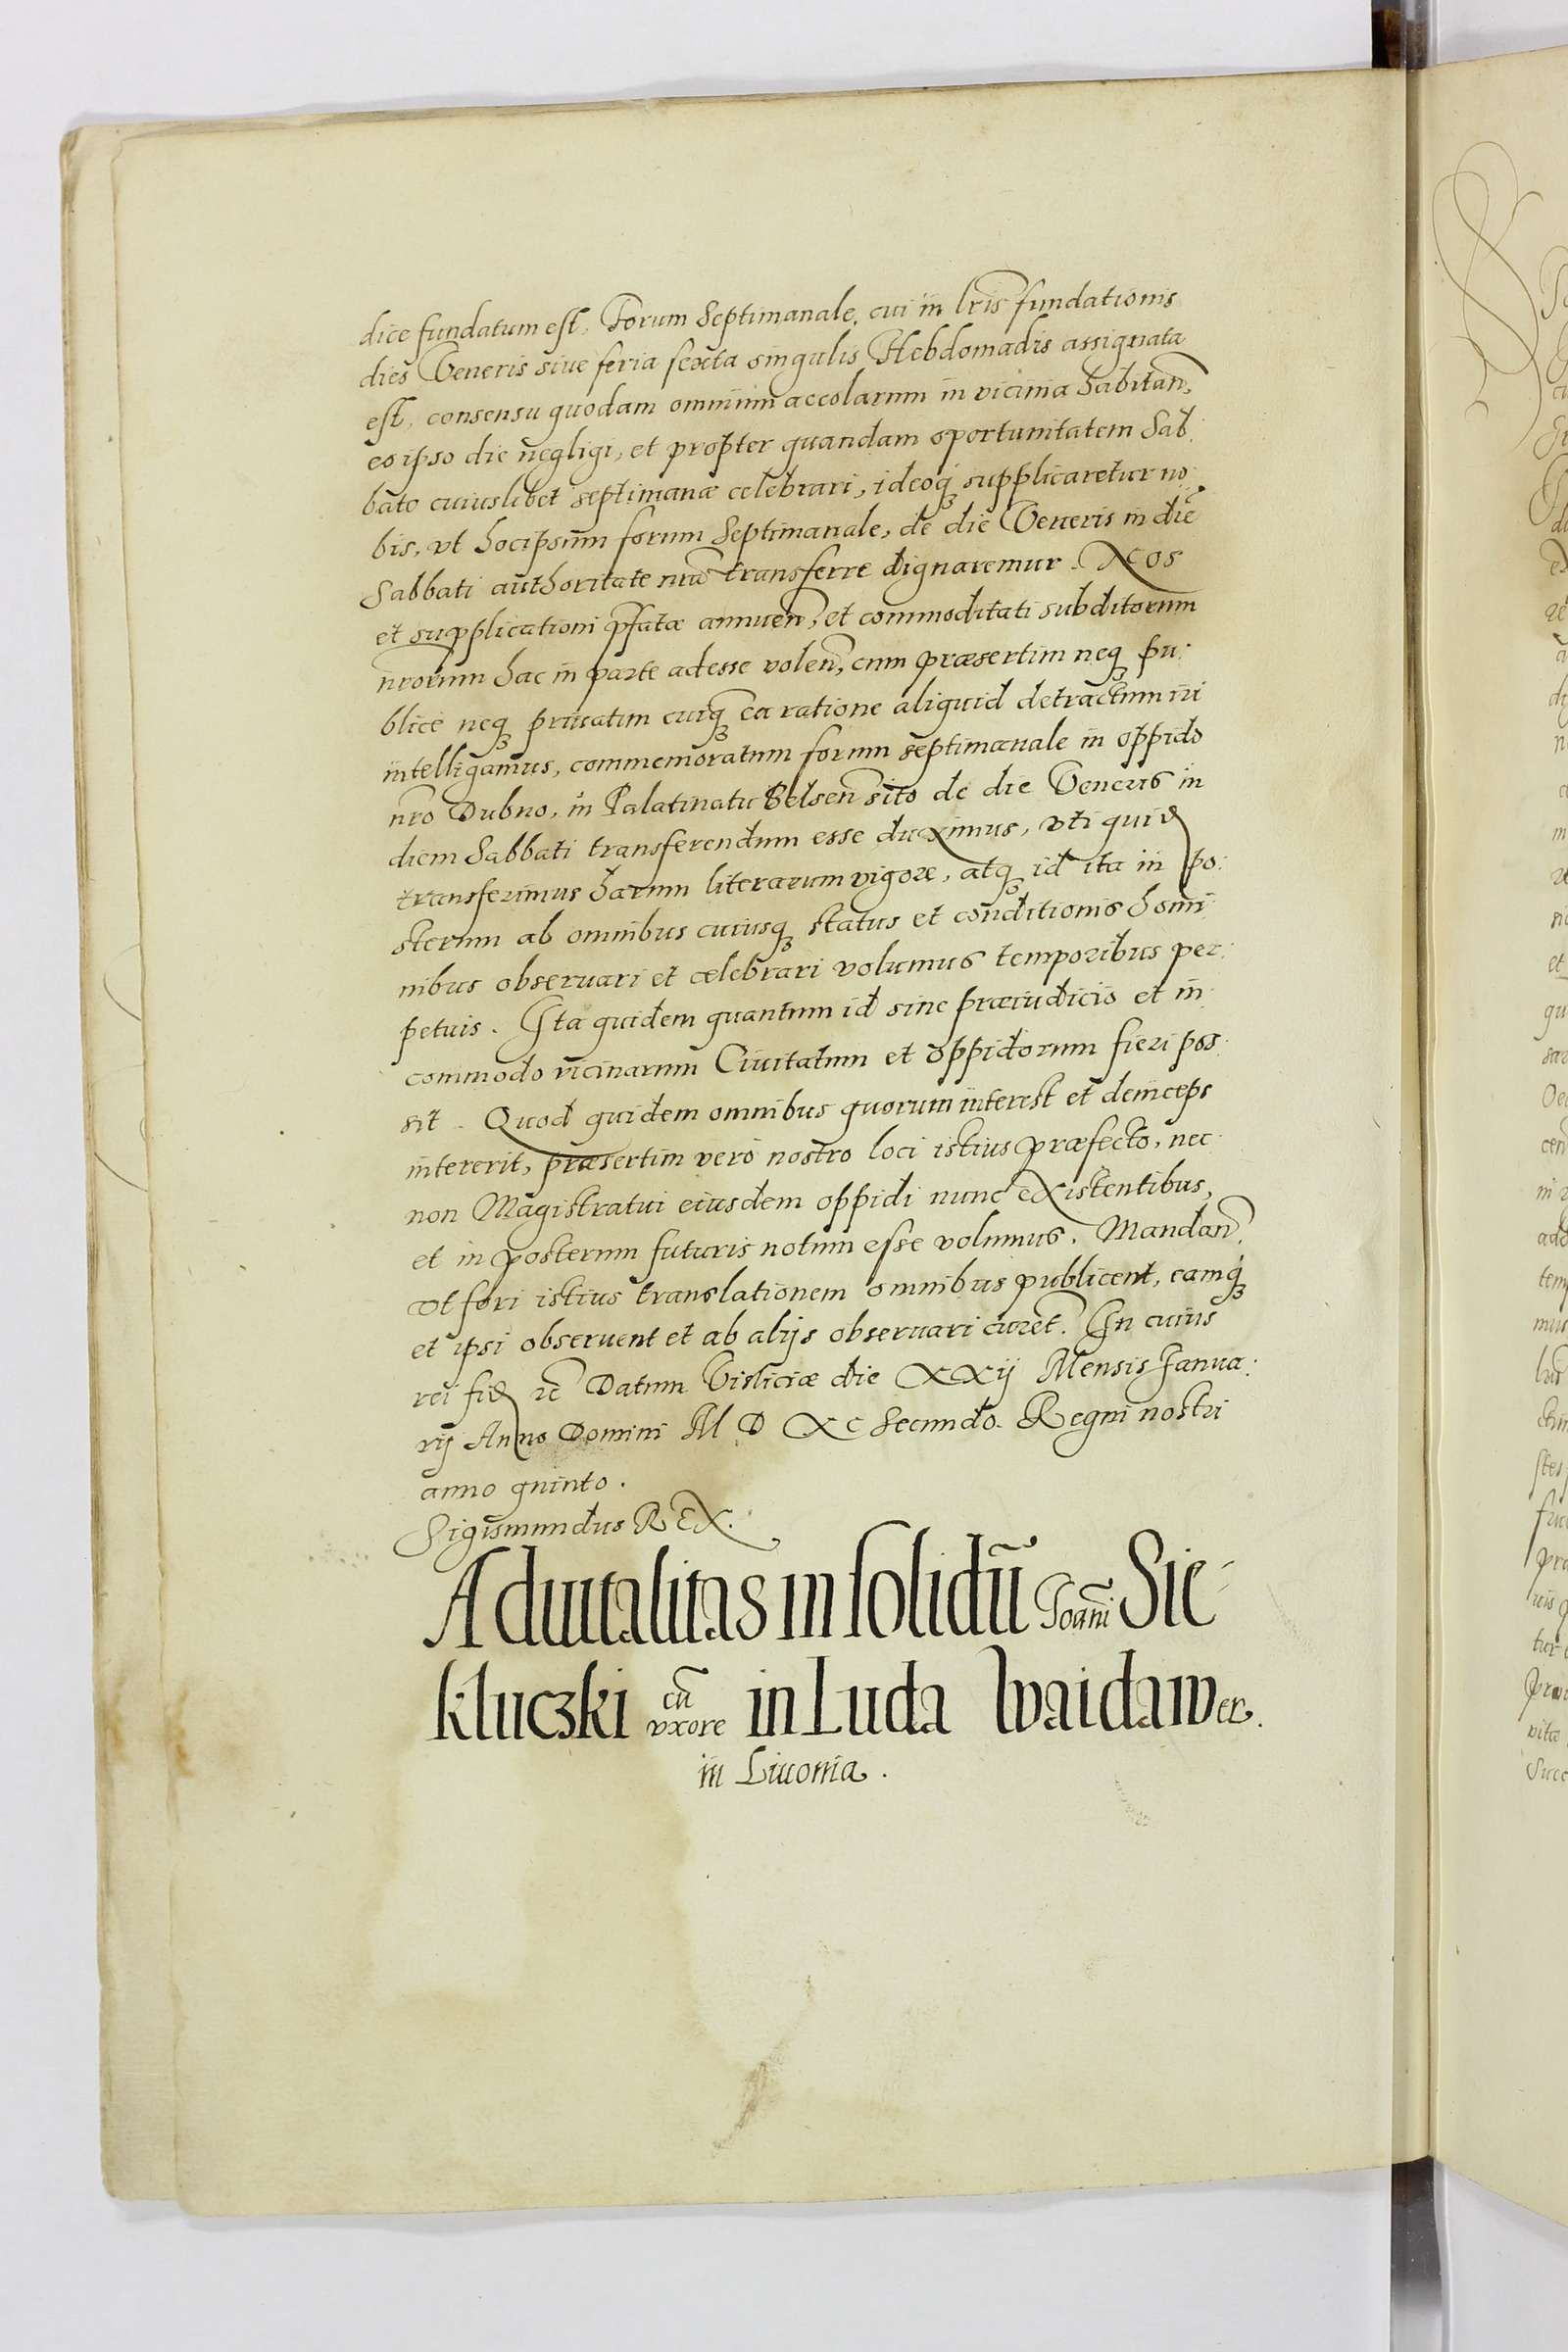 dice fundatum est, Forum Septimanale, cui in lris fundationis
dies Veneris siue feria sexta singulis Hebdomadis assignata
est, consensu quodam omnium accolarum in vicinia habitan,
eo ipso die negligi, et propter quandam oportunitatem Sab:
bato cuiuslibet septimanæ celebrari, ideoq supplicaretur no:
bis, vt hocipsum forum Septimanale, de die Veneris in die
Sabbati authoritate nra transferre dignaremur. Nos
et supplicationi pfatæ annuen, et commoditati subditorum
nrorum hac in parte adesse volen, cum præsertim neq pu:
blice neq priuatim cuiq ea ratione aliquid detractum iri
intelligamus, commemoratum forum septimanale in oppido
nro Dubno, in Palatinatu Belsen sito de die Veneris in
diem Sabbati transferendum esse duximus, vti quid
transferimus harum literarum vigore, atq id ita in po:
sterum ab omnibus cuiusq status et conditionis homi
nibus obseruari et celebrari volumus temporibus per:
petuis. Ita quidem quantum id sine præiudicio et in
commodo vicinarum Ciuitatum et oppidorum fieri pos:
sit. Quod quidem omnibus quorum interest et deinceps
intererit, præsertim vero nostro loci istius præfecto, nec
non Magistratui eiusdem oppidi nunc existentibus,
et in posterum futuris notum esse volumus. Mandan,
vt fori istius translationem omnibus publicent, eamq
et ipsi obseruent et ab alijs obseruari curet. In cuius
rei fid rc Datum Visliciæ die XXij Mensis Janua:
rij Anno Domini M D XC Secundo. Regni nostri
anno quinto.
Sigismundus REX.
Aduitalitas in solidu Joani Sie-
kluczki cu vxore in Luda Waidawer.
in Liuonia.